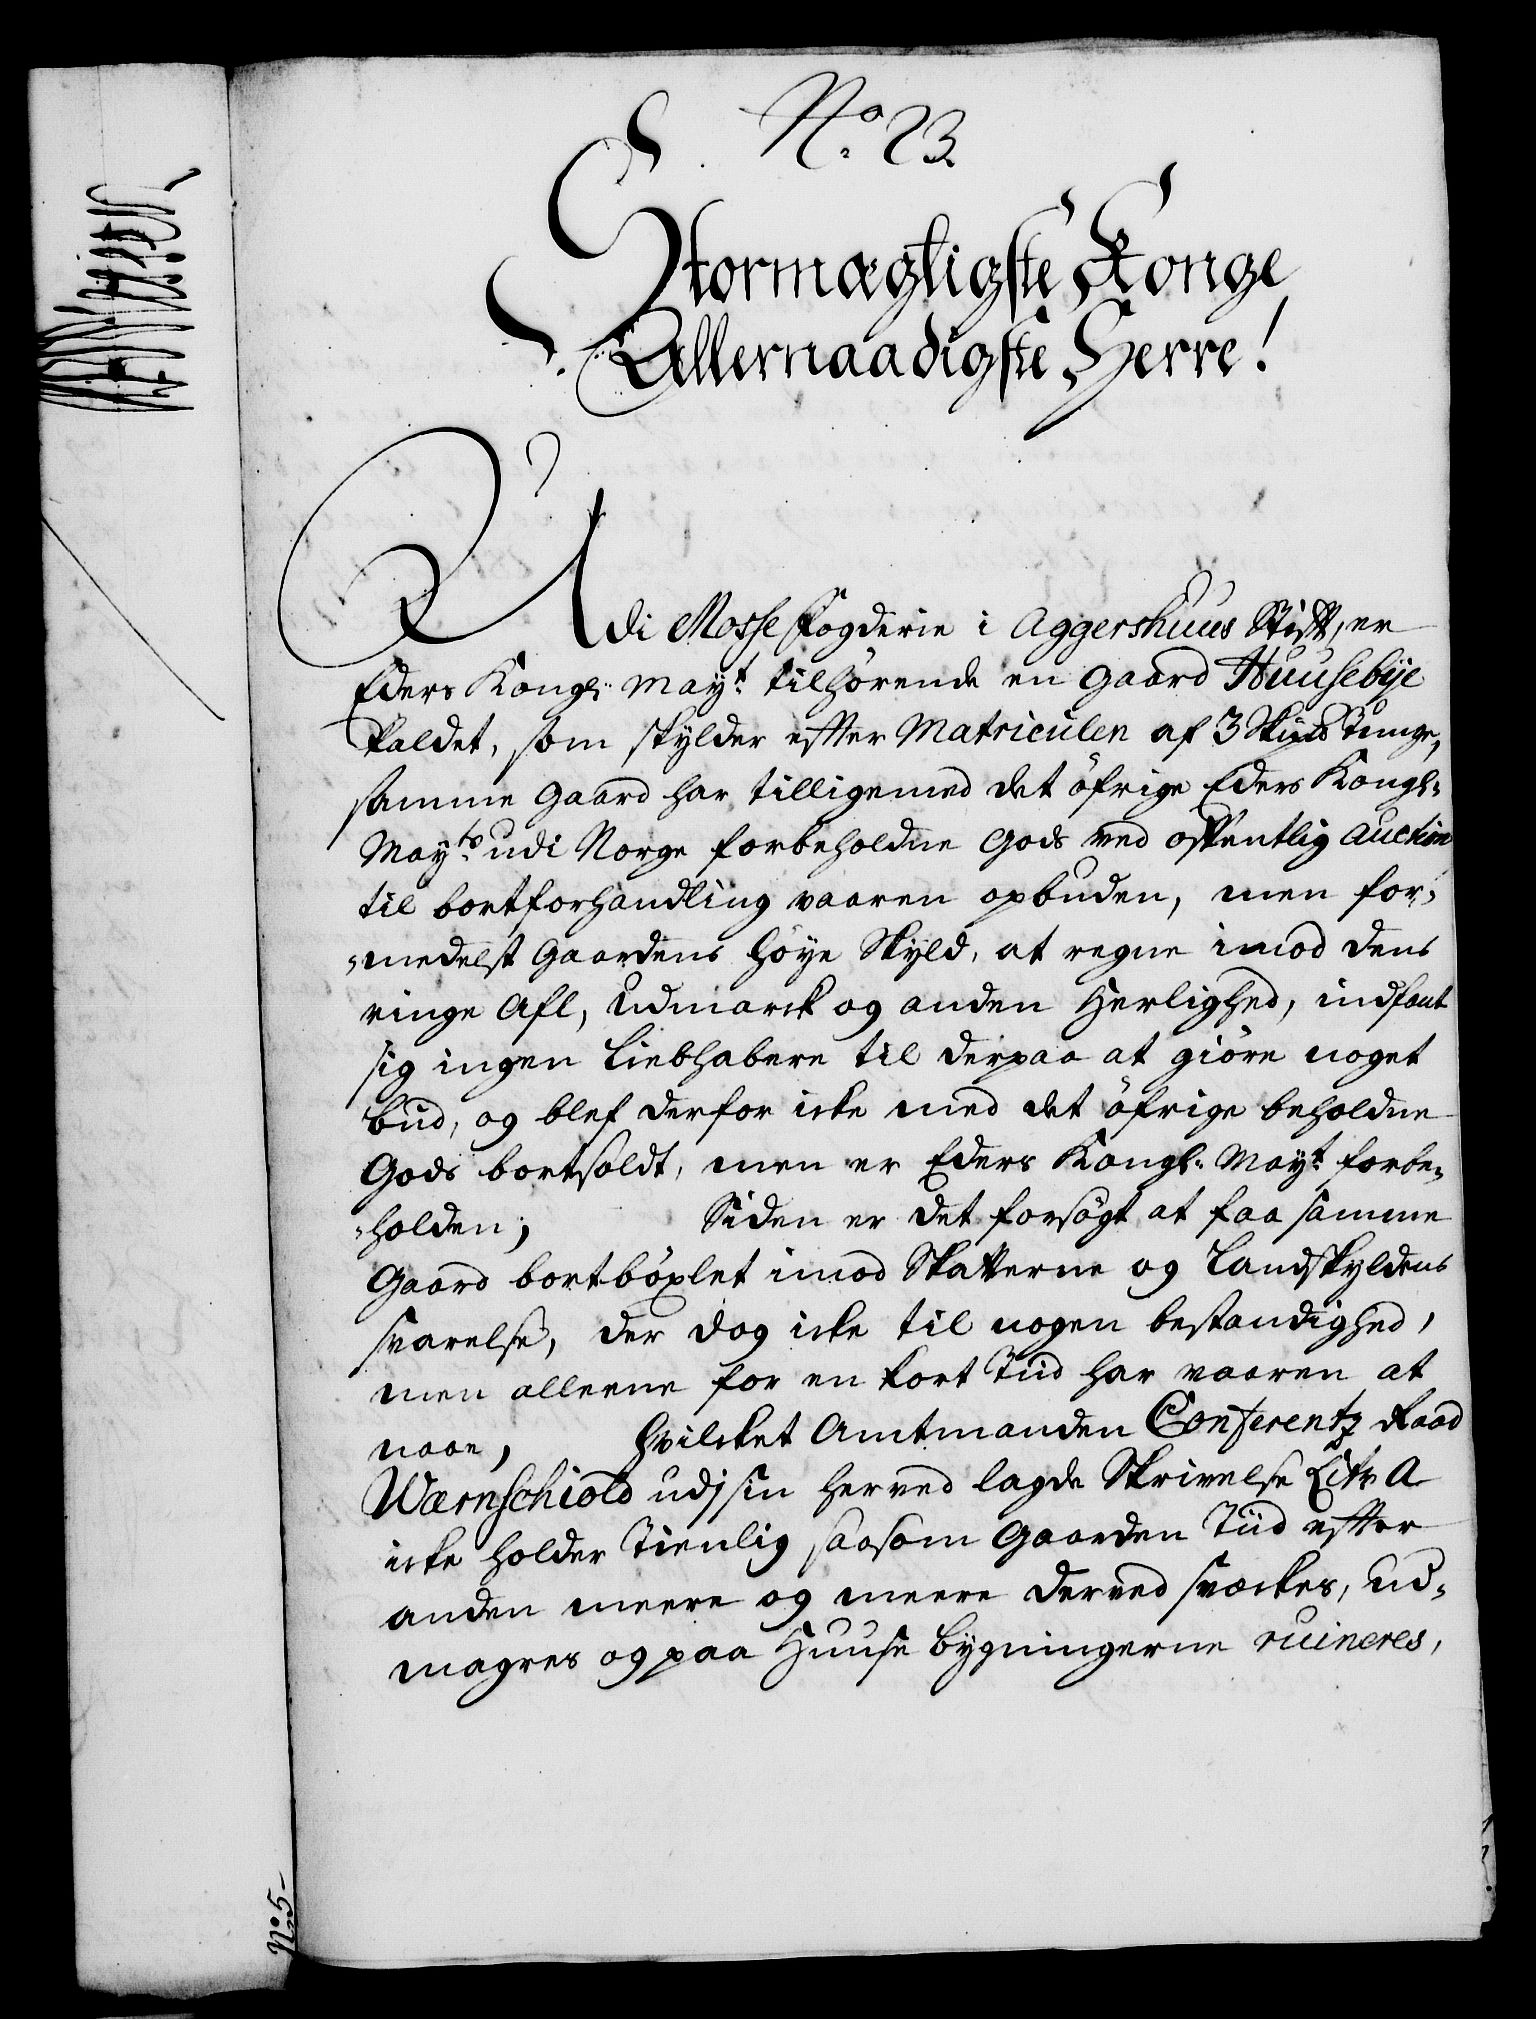 No. 23.
Stormægtigste Konge
Allernaadigste Herre!
Udi Mosse fogderie i Aggershuus Stift, er
Eders Kongl: Mayt. tilhørende en gaard Huusebÿe
kaldet, som skylder efter Matriculen af 3 Skipd Tunge,
samme gaard har tilligemed det öfrige Eders Kongl:
Mayts. udi Norge forbeholdne Gods ved offentlig Auction
til bortforhandling vaaren opbuden, men for-
medelst Gaardens höye Skyld, at regne imod dens
ringe Afl, Udmarck og anden Herlighed, indfant
sig ingen Liebhabere til derpaa at giöre noget
bud, og blef derfor icke med det öfrige beholdne
Gods bortsoldt, men er Eders Kongl: Mayt. forbe-
holden; Siden er det forsögt at faa samme
Gaard bortböxlet imod Skatterne og Landskyldens
svarelse, der dog icke til nogen bestandighed,
men alleene for en kort Tiid har vaaren at
naae, hvilcket Amtmanden Conferentz Raad
Wærnschiold udj sin herved lagde Skrivelse Litr A
icke holder tienlig saasom Gaarden Tiid efter
anden meere og meere derved svæckes, ud-
magres og paa Huuse bygningerne ruineres,
No: 5-